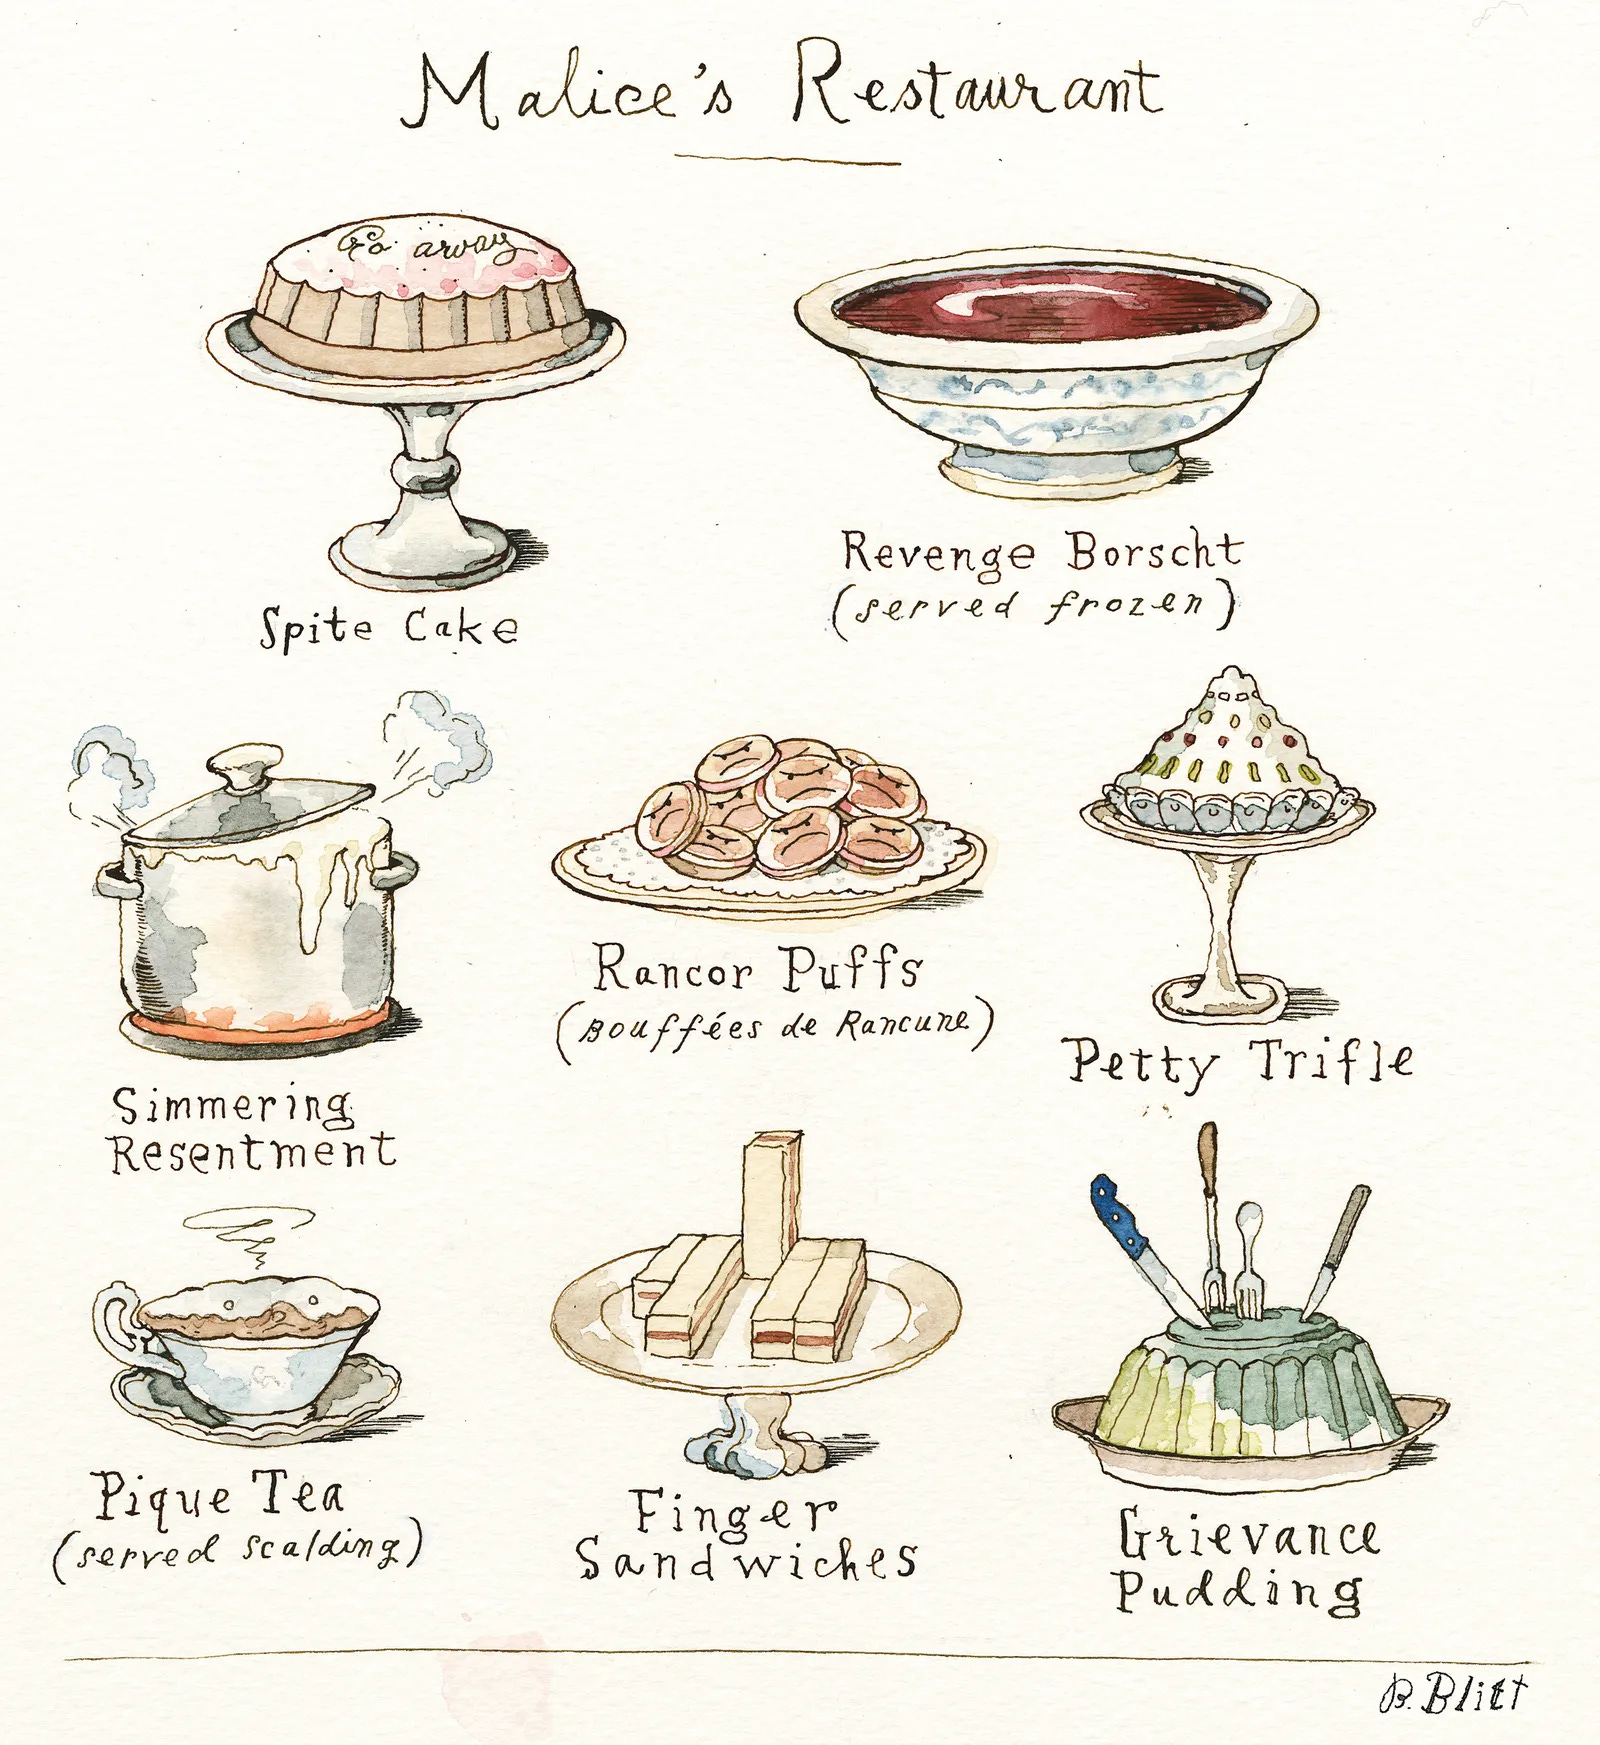 Malice's Restaurant
Go away
Spite Cake
Revenge Borscht
(served frozen)
Simmering
Resentment
Rancor Puffs
(Bouffées de Rancune)
Petty Trifle
Pique Tea
(served scalding)
Finger
Sandwiches
Grievance
Pudding
B. Blitt